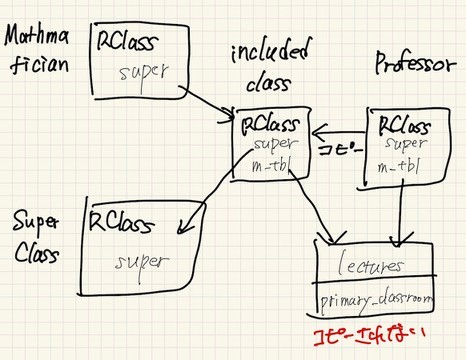 Mathma
tician
RClass
super
included
class
RClass
super
m_tbl
Professor
RClass
super
m_tbl
コピー
Super
Class
RClass
super
lectures
primary_classroom
コピーされない